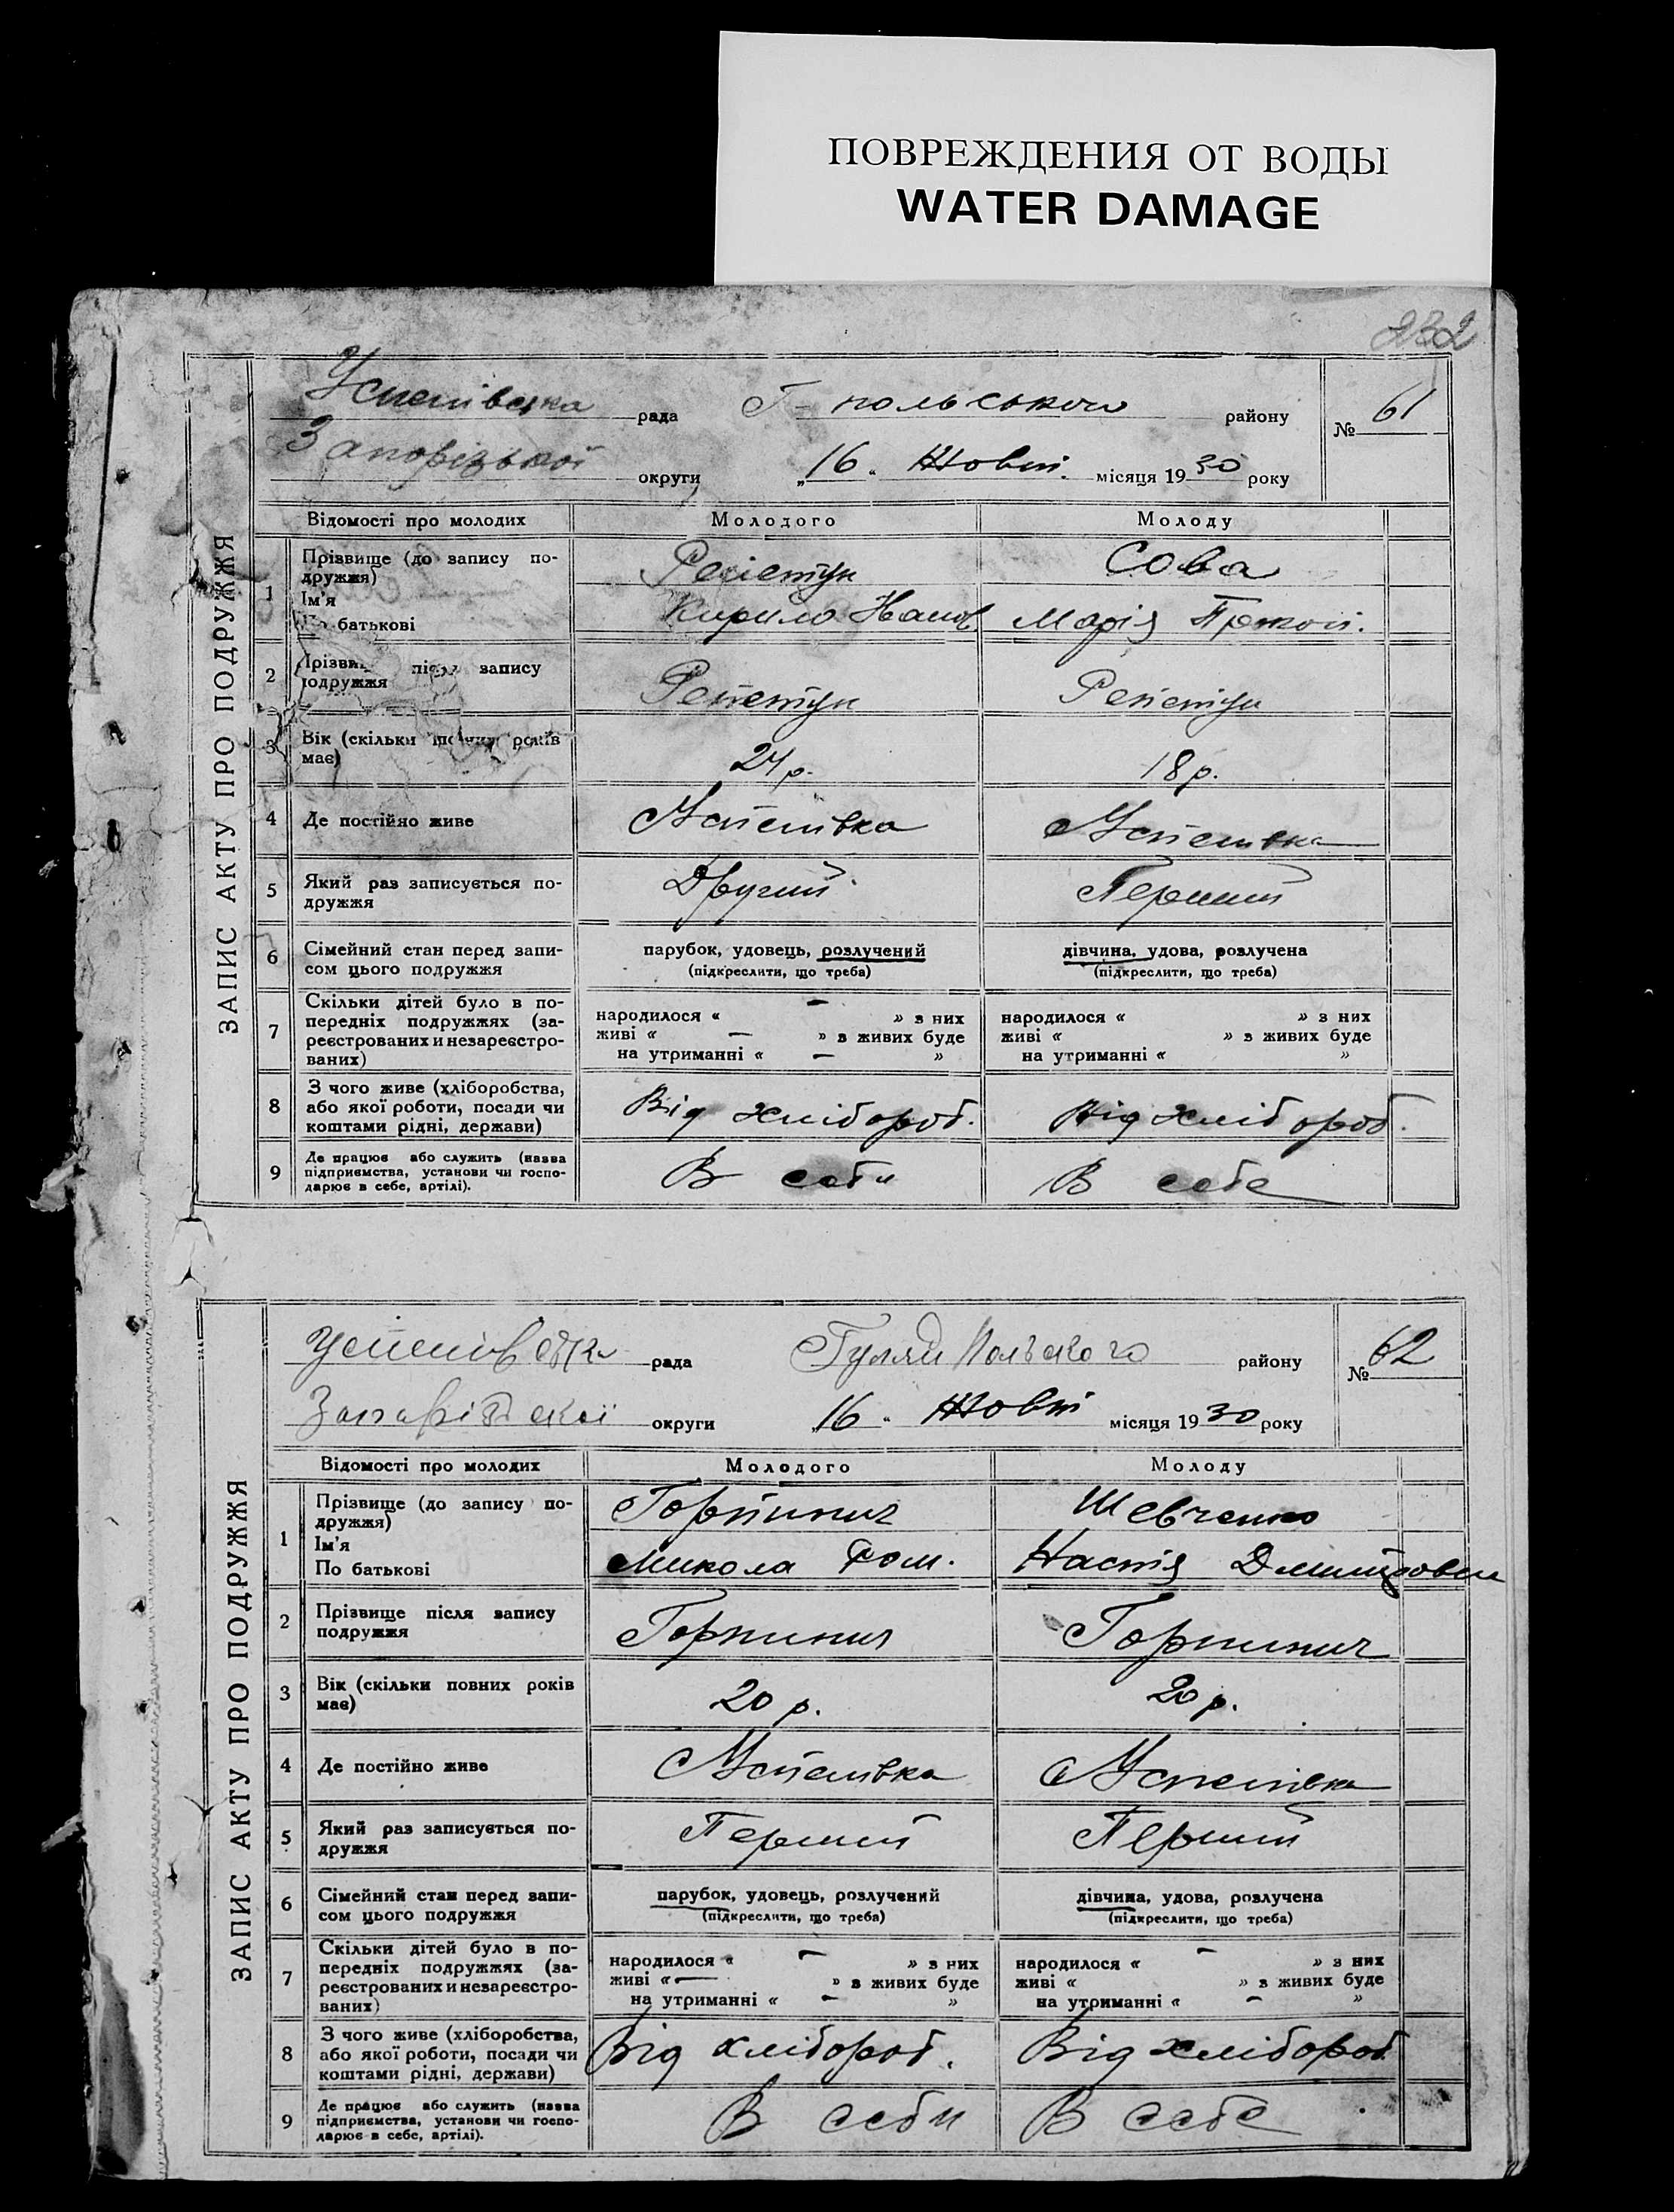 ПОВРЕЖДЕНИЯ ОТ ВОДЫ
WATER DAMAGE
232
ЗАПИС АКТУ ПРО ПОДРУЖЖЯ
Успенівська рада Г-польського району № 61
Запорізької округи „16“ Жовт. місяця 1930 року
Відомості про молодих Молодого Молоду
1 Прізвище (до запису по-
дружжя) Репетун Сова
Ім'я
По батькові Кирило Іванов Марія Проком.
2 Прізвище після запису
подружжя Репетун Репетун
3 Вік (скільки повних років
має) 24 р. 18 р.
4 Де постійно живе Успенівка Успенівка
5 Який раз записується по-
дружжя Другий Перший
6 Сімейний стан перед запи-
сом цього подружжя
парубок, удовець, розлучений дівчина, удова, розлучена
(підкреслити, що треба) (підкреслити, що треба)
7 Скільки дітей було в по-
передніх подружжях (за-
реєстрованих и незареєстро-
ваних)
народилося « — » з них народилося « » з них
живі « — » з живих буде живі « » з живих буде
на утриманні « — » на утриманні « »
8 З чого живе (хліборобства,
або якої роботи, посади чи
коштами рідні, держави) Від хлібороб. Від хлібороб.
9 Де працює або служить (назва
підприємства, установи чи госпо-
дарює в себе, артілі). В себи В себе
ЗАПИС АКТУ ПРО ПОДРУЖЖЯ
Успенівська рада Гуляй Польского району № 62
Запорізької округи „16“ Жовт місяця 1930 року
Відомості про молодих Молодого Молоду
1 Прізвище (до запису по-
дружжя) Горпинич Шевченко
Ім'я
По батькові Микола Ром. Настя Дмитровн
2 Прізвище після запису
подружжя Горпинич Горпинич
3 Вік (скільки повних років
має) 20 р. 20 р.
4 Де постійно живе Успенівка Успенівка
5 Який раз записується по-
дружжя Перший Перший
6 Сімейний стан перед запи-
сом цього подружжя
парубок, удовець, розлучений дівчина, удова, розлучена
(підкреслити, що треба) (підкреслити, що треба)
7 Скільки дітей було в по-
передніх подружжях (за-
реєстрованих и незареєстро-
ваних)
народилося « — » з них народилося « — » з них
живі « — » з живих буде живі « » з живих буде
на утриманні « — » на утриманні « — »
8 З чого живе (хліборобства,
або якої роботи, посади чи
коштами рідні, держави) Від хлібороб. Від хлібороб
9 Де працює або служить (назва
підприємства, установи чи госпо-
дарює в себе, артілі). В себи В себе